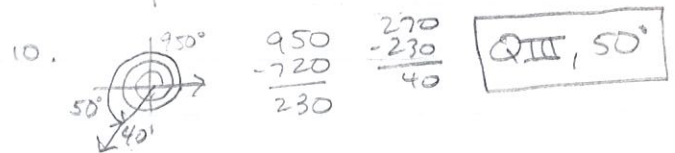 10.
950°
50°
40°
950
-720
230
270
-230
40
QIII, 50°